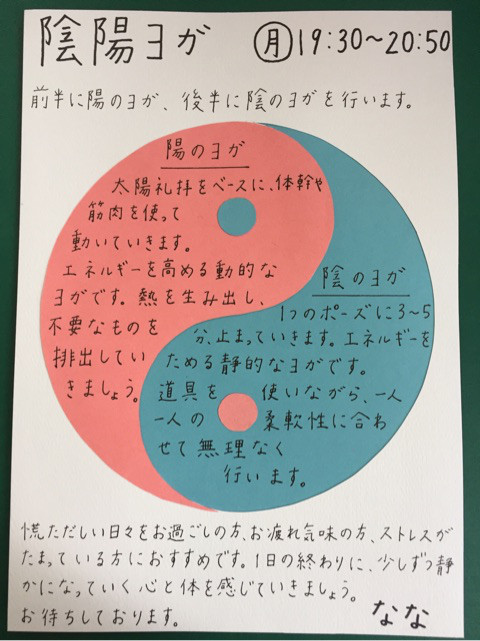 陰陽ヨガ ㊊19:30〜20:50
前半に陽のヨガ、後半に陰のヨガを行います。
陽のヨガ
太陽礼拝をベースに、体幹や
筋肉を使って
動いていきます。
エネルギーを高める動的な
ヨガです。熱を生み出し、
不要なものを
排出してい
きましょう。
陰のヨガ
1つのポーズに3〜5
分、止まっていきます。エネルギーを
ためる静的なヨガです。
道具を使いながら、一人
一人の柔軟性に合わ
せて無理なく
行います。
慌ただしい日々をお過ごしの方、お疲れ気味の方、ストレスが
たまっている方におすすめです。1日の終わりに、少しずつ静
かになっていく心と体を感じていきましょう。
お待ちしております。 なな